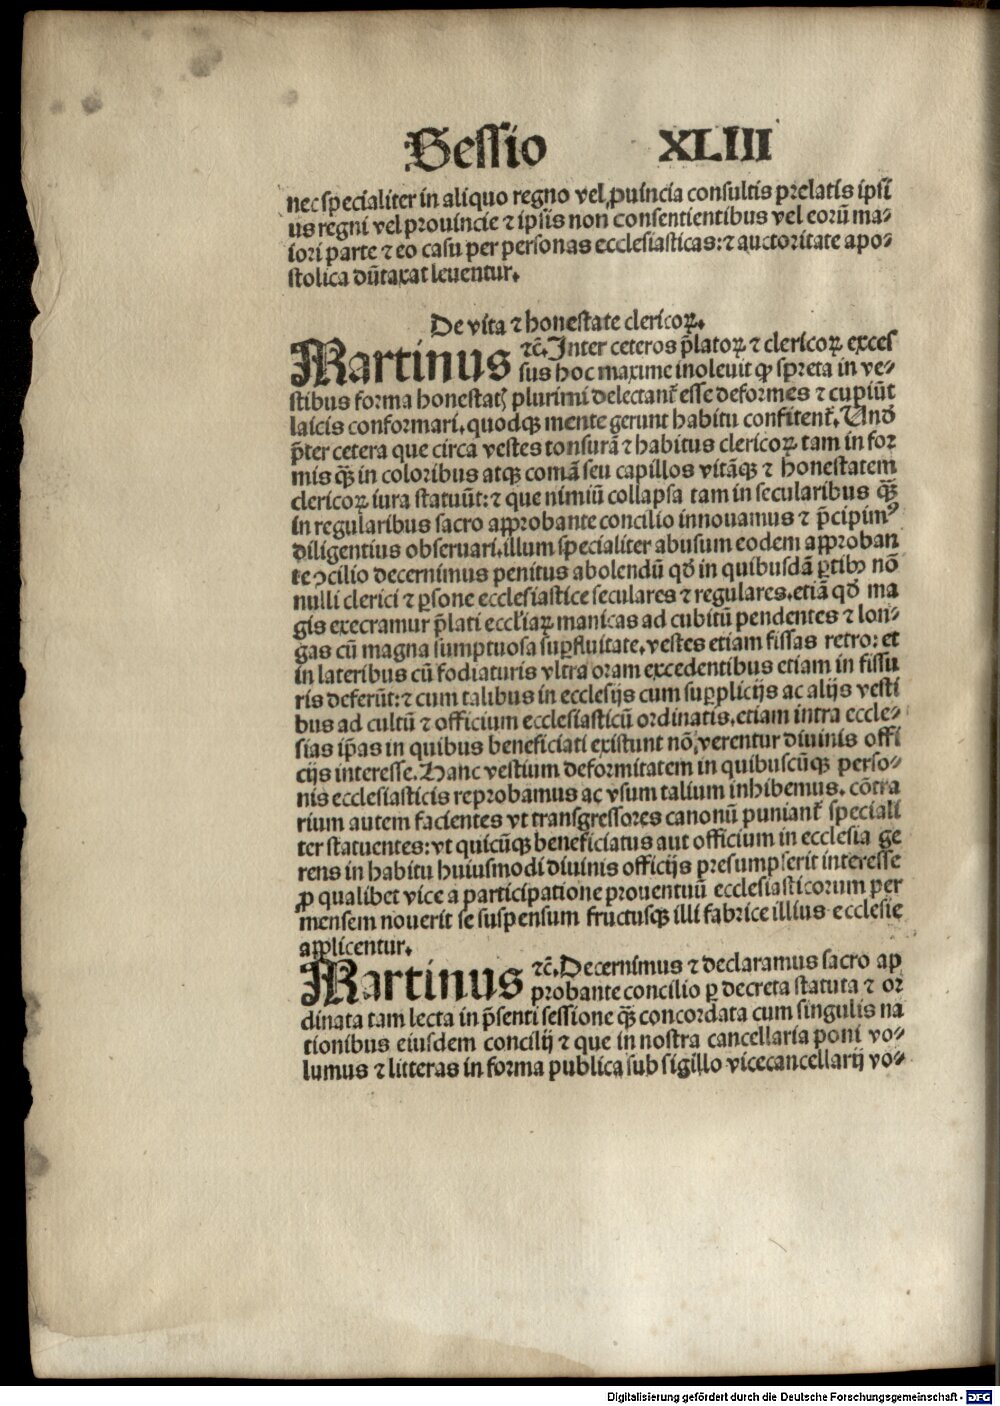 Sessio XLIII
nec specialiter in aliquo regno vel ꝓuincia consultis prelatis ipsi
us regni vel prouincie ⁊ ipsis non consentientibus vel eorū ma⸗
iori parte ⁊ eo casu per personas ecclesiasticas: ⁊ auctoritate apo⸗
stolica dūtaxat leuentur.
De vita ⁊ honestate clericoꝝ.
Martinus ⁊c̄. Inter ceteros p̄latoꝝ ⁊ clericoꝝ exces
sus hoc maxime inoleuit ꝙ spreta in ve⸗
stibus forma honestatꝭ plurimi delectant᷑ esse deformes ⁊ cupiūt
laicis conformari. quodqꝫ mente gerunt habitu confitent᷑. Unď
p̄ter cetera que circa vestes tonsurā ⁊ habitus clericoꝝ tam in for
mis qꝫ̄ in coloribus atqꝫ comā seu capillos vitāqꝫ ⁊ honestatem
clericoꝝ iura statuūt: ⁊ que nimiū collapsa tam in secularibus qꝫ̄
in regularibus sacro approbante concilio innouamus ⁊ p̄cipimꝰ
diligentius obseruari. illum specialiter abusum eodem approban
te ↄcilio decernimus penitus abolendū qď in quibusdā ꝑtibꝫ nō
nulli clerici ⁊ ꝑsone ecclesiastice seculares ⁊ regulares. etiā qď ma
gis execramur p̄lati eccl'iaꝝ manicas ad cubitū pendentes ⁊ lon⸗
gas cū magna sumptuosa suꝑfluitate. vestes etiam fissas retro: et
in lateribus cū fodiaturis vltra oram excedentibus etiam in fissu
ris deferūt: ⁊ cum talibus in ecclesijs cum suꝑplicijs ac alijs vesti
bus ad cultū ⁊ officium ecclesiasticū ordinatis. etiam intra eccle⸗
sias ip̄as in quibus beneficiati existunt nō verentur diuinis offi
cijs interesse. Hanc vestium deformitatem in quibuscūqꝫ perso⸗
nis ecclesiasticis reprobamus ac vsum talium inhibemus. cōtra
rium autem facientes vt transgressores canonū puniant᷑ speciali
ter statuentes: vt quicūqꝫ beneficiatus aut officium in ecclesia ge
rens in habitu huiusmodi diuinis officijs presumpserit interesse
ꝓ qualibet vice a participatione prouentuū ecclesiasticorum per
mensem nouerit se suspensum fructusqꝫ illi fabrice illius ecclesie
applicentur.
Martinus ⁊c̄. Decernimus ⁊ declaramus sacro ap
probante concilio ꝑ decreta statuta ⁊ or
dinata tam lecta in p̄senti sessione qꝫ̄ concordata cum singulis na
tionibus eiusdem concilij ⁊ que in nostra cancellaria poni vo⸗
lumus ⁊ litteras in forma publica sub sigillo vicecancellarij vo⸗
Digitalisierung gefördert durch die Deutsche Forschungsgemeinschaft - DFG